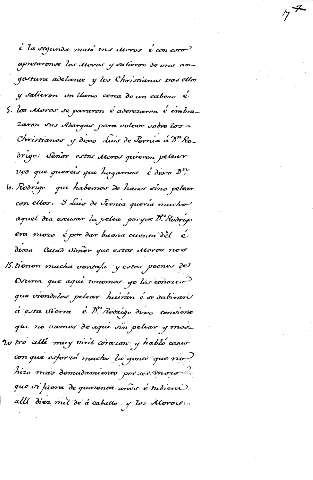 174
é la segunda mató tres Moros é con esto
apretaronse los Moros y salieron de una an-
gostura adelante y los Christianos tras ellos
y salieron un llano cerca de un cabeso é
5. los Moros se pararon é aderezaron é embra-
zaron sus Adargas para volver sobre los
Christianos y dixo Luis de Pernia á Dn. Ro-
drigo: Señor estos Moros quieren pelear
veo que quereis que hagamos é dixo Dn.
10. Rodrigo que habemos de hacer sino pelear
con ellos. I Luis de Pernia queria mucho
aquel dia escusar la pelea porque Dn. Rodrigo
era mozo é por dar buena cuenta dél é
dixo Catad Señor que estos Moros nos
15. tienen mucha ventaja y estos peones de
Osuna que aqui tenemos yo los conozco
que viendolos pelear huirán é se subiran
á esta Sierra é Dn. Rodrigo dixo
qui no vamos de aqui sin pelear y mos-
20 tro alli muy viril corazon y habló cosas
con que esforzó mucho la gente que no
hizo mas demudamiento por ser mozo
que si fuera de quarenta años é tubiera
alli diez mil de á caballo y los Moros